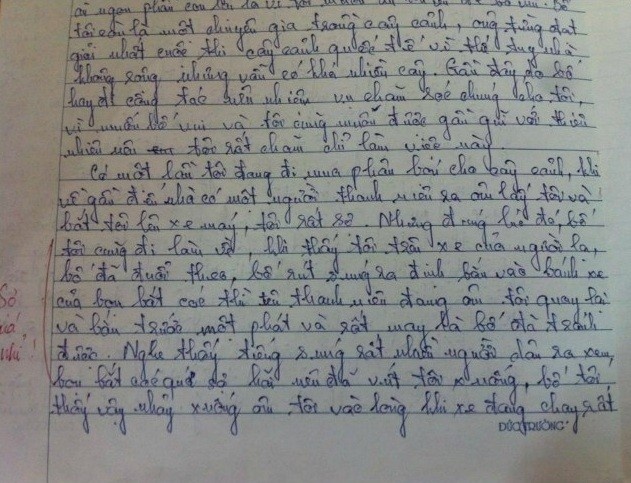 ai ngon phần con lớn là vì tôi
tôi còn là một chuyên gia trồng cây cảnh, ông từng đạt
giải nhất cuộc thi cây cảnh quốc tế vì thế tuy nhà
không rộng nhưng vẫn có khá nhiều cây. Gần đây do bố
hay đi công tác nên nhiệm vụ chăm sóc chúng cho tôi,
vì muốn bố vui và tôi cũng muốn được gần gũi với thiên
nhiên nên tôi rất chăm chỉ làm việc này.
Có một lần tôi đang đi mua phân bón cho cây cảnh, khi
về gần đến nhà có một người thanh niên ra ôm lấy tôi và
bắt tôi lên xe máy, tôi rất sợ. Nhưng đúng lúc đó bố
tôi cũng đi làm về, khi thấy tôi trên xe của người lạ,
bố đã đuổi theo, bố rút súng ra định bắn vào bánh xe
của bọn bắt cóc thì tên thanh niên đang ôm tôi quay lại
và bắn trước một phát và rất may là bố đã tránh
được. Nghe thấy tiếng súng rất nhiều người dân ra xem,
bọn bắt cóc quá sợ hãi nên đã vứt tôi xuống, bố tôi
thấy vậy nhảy xuống ôm tôi vào lòng khi xe đang chạy rất
ĐỨC TRƯỜNG
Sơ
giá
nhỉ!